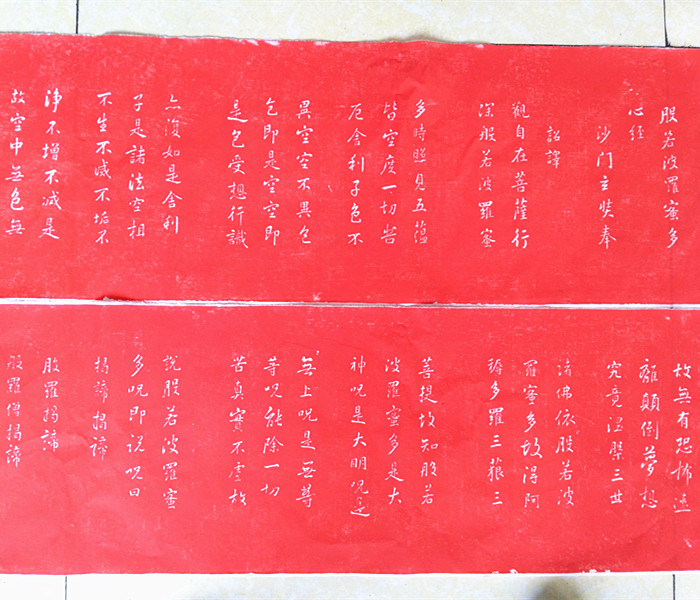 般若波羅蜜多
心経
沙门玄奘奉
詔譯
觀自在菩薩行
深般若波羅蜜
多時照見五蘊
皆空度一切苦
厄舍利子色不
異空空不異色
色即是空空即
是色受想行識
亦復如是舍利
子是諸法空相
不生不滅不垢不
淨不增不减是
故空中無色無
故無有恐怖遠
離顛倒夢想
究竟涅槃三世
諸佛依般若波
羅蜜多故得阿
耨多羅三藐三
菩提故知般若
波羅蜜多是大
神呪是大明呪是
無上呪是無等
等呪能除一切
苦真實不虛故
說般若波羅蜜
多呪即说呪曰
揭諦揭諦
般羅揭諦
般羅僧揭諦